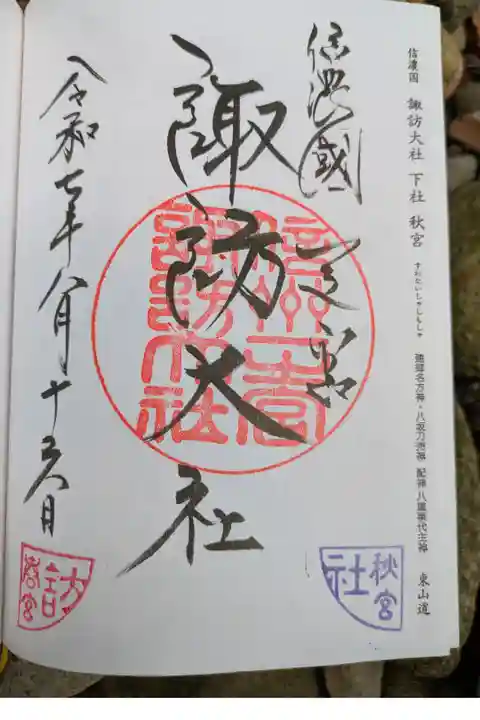 信濃国 諏訪大社 下社 秋宮 すわたいしゃしもしゃ 建御名方神・八坂刀売神 配神 八重事代主神 東山道
信濃國 一之宮
諏訪大社
信州一宮
諏訪大社
令和七年八月十六日
秋宮
社